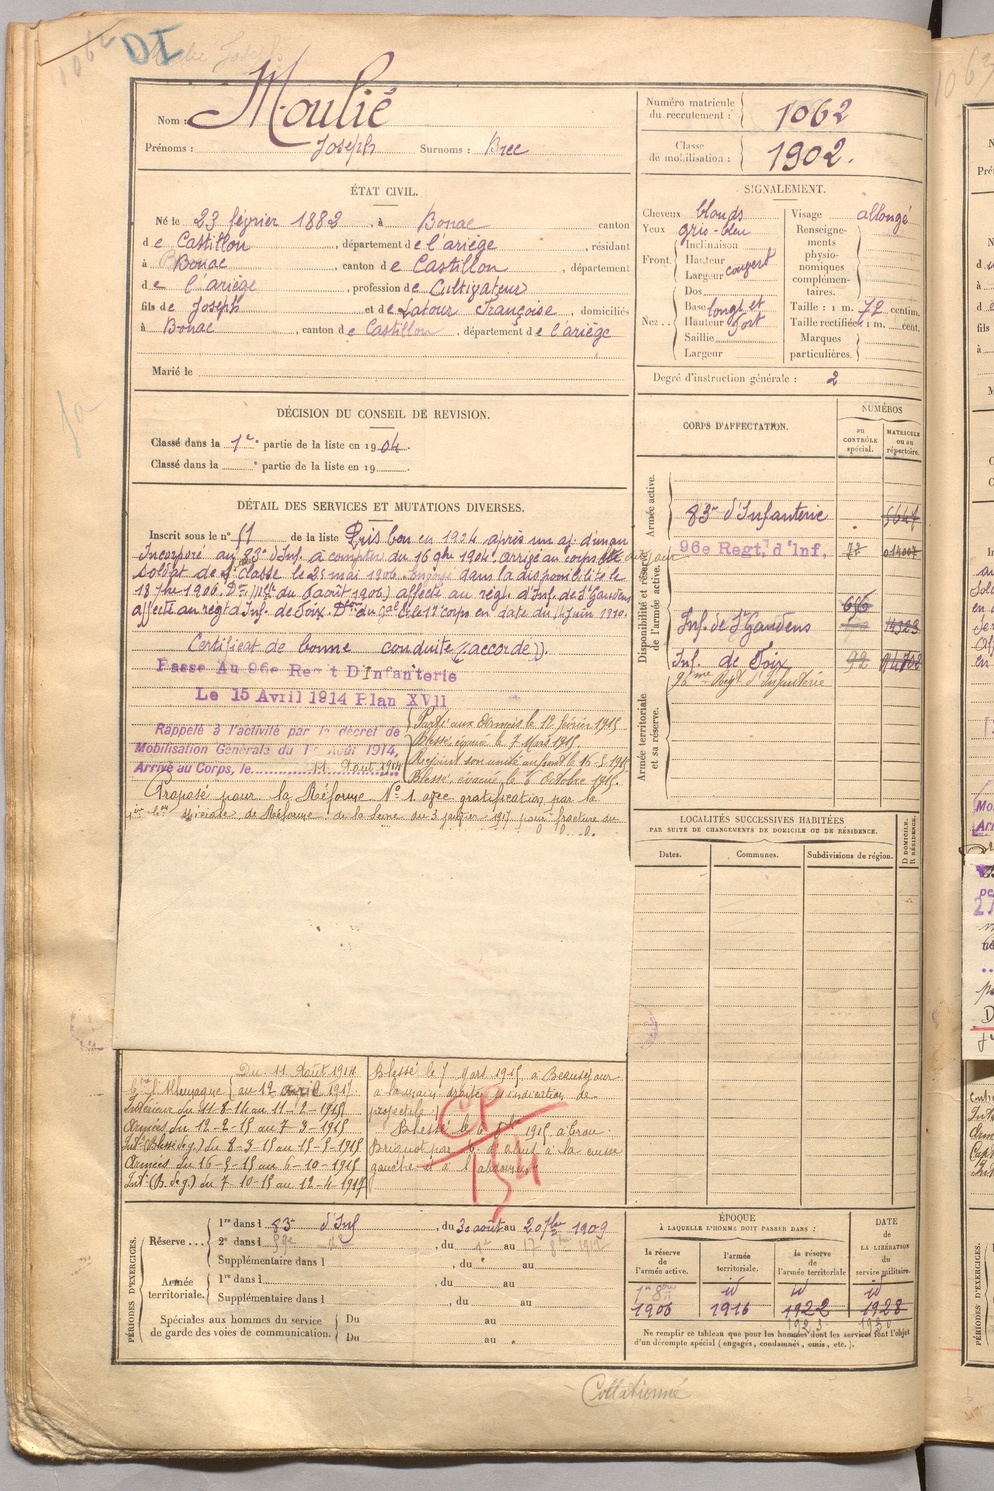 1062 DI
Nom : Moulié
Prénoms : Joseph Surnoms : Brec
Numéro matricule du recrutement : 1062
Classe de mobilisation : 1902.
ÉTAT CIVIL.
Né le 23 février 1882, à Bonac canton
de Castillon, département de l'ariège, résidant
à Bonac, canton de Castillon, département
de l'ariège, profession de Cultivateur
fils de Joseph et de Latour Françoise, domiciliés
à Bonac, canton de Castillon, département de l'ariège
Marié le
SIGNALEMENT.
Cheveux blonds
Yeux gris-bleu
Front. Inclinaison
Hauteur
Largeur couvert
Nez.. Dos
Base long et
Hauteur fort
Saillie
Largeur
Visage allongé
Renseignements physionomiques complémentaires.
Taille : 1 m. 72 centim.
Taille rectifiée: 1 m. cent.
Marques particulières.
Degré d'instruction générale : 2
DÉCISION DU CONSEIL DE REVISION.
Classé dans la 1re partie de la liste en 1904.
Classé dans la e partie de la liste en 19
CORPS D'AFFECTATION.
NUMÉROS
au CONTRÔLE spécial.
MATRICULE ou au répertoire.
Armée active.
83e d'Infanterie
Disponibilité et réserve de l'armée active.
96e Regt. d'Inf.
Inf. de St Gaudens
Inf. de Foix 92
96me Regt d'Infanterie
Armée territoriale et sa réserve.
DÉTAIL DES SERVICES ET MUTATIONS DIVERSES.
Inscrit sous le n° 51 de la liste Pris bon en 1904 après un aj. d'un an
Incorporé au 83e d'Inf. à compter du 16 9bre 1904. arrivé au corps
Soldat de 1e classe le 25 mai 1906. dans la disponibilité le
18 7bre 1906. affecté au régt. d'Inf. de St Gaudens
affecté au régt d'Inf. de Foix. du 17e corps en date du 14 juin 1910.
Certificat de bonne conduite (accordé).
Passé Au 96e Regt D'Infanterie
Le 15 Avril 1914 Plan XVII
Rappelé à l'activité par le décret de
Mobilisation Générale du 1er Août 1914,
Arrivé au Corps, le 11 Août 1914
Parti aux Armées le 12 février 1915
Blessé évacué le 7 Mars 1915.
Rejoint son unité au front le 16-5-1915
Blessé, évacué le 6 Octobre 1915.
Proposé pour la Réforme N° 1 avec gratification par la
spéciale de Réforme de la Seine du 3 janvier 1917 pour fracture du
LOCALITÉS SUCCESSIVES HABITÉES
PAR SUITE DE CHANGEMENTS DE DOMICILE OU DE RÉSIDENCE.
Dates. Communes. Subdivisions de région. D DOMICILE. R RÉSIDENCE.
Du 11 Août 1914
l'Allemagne au 12 avril 1917
Intérieur du 11-8-14 au 11-2-1915
Armées du 12-2-15 au 7-3-1915
Int. (Bless. de g.) du 8-3-15 au 15-5-1915
Armées du 16-5-15 au 6-10-1915
Int. (B. de g.) du 7-10-15 au 12-4-1917
Blessé le 7 Mars 1915 à Beauséjour
à la main droite (s indication de
projectile)
Blessé le 6 8bre 1915 à
par é. d'obus à la cuisse
gauche et à l'abdomen
CP
154
PÉRIODES D'EXERCICES.
Réserve... 1re dans l 83e d'Inf, du 30 août au 20 7bre 1909
2e dans l, du 1er au 17 1912
Supplémentaire dans l, du au
Armée territoriale. 1re dans l, du au
Supplémentaire dans l, du au
Spéciales aux hommes du service de garde des voies de communication. Du au
Du au
ÉPOQUE
À LAQUELLE L'HOMME DOIT PASSER DANS :
la réserve de l'armée active. l'armée territoriale. la réserve de l'armée territoriale
DATE de LA LIBÉRATION du service militaire.
id id id
1906 1916 1922 1928
Ne remplir ce tableau que pour les hommes dont les services font l'objet
d'un décompte spécial (engagés, condamnés, omis, etc.).
Collationné